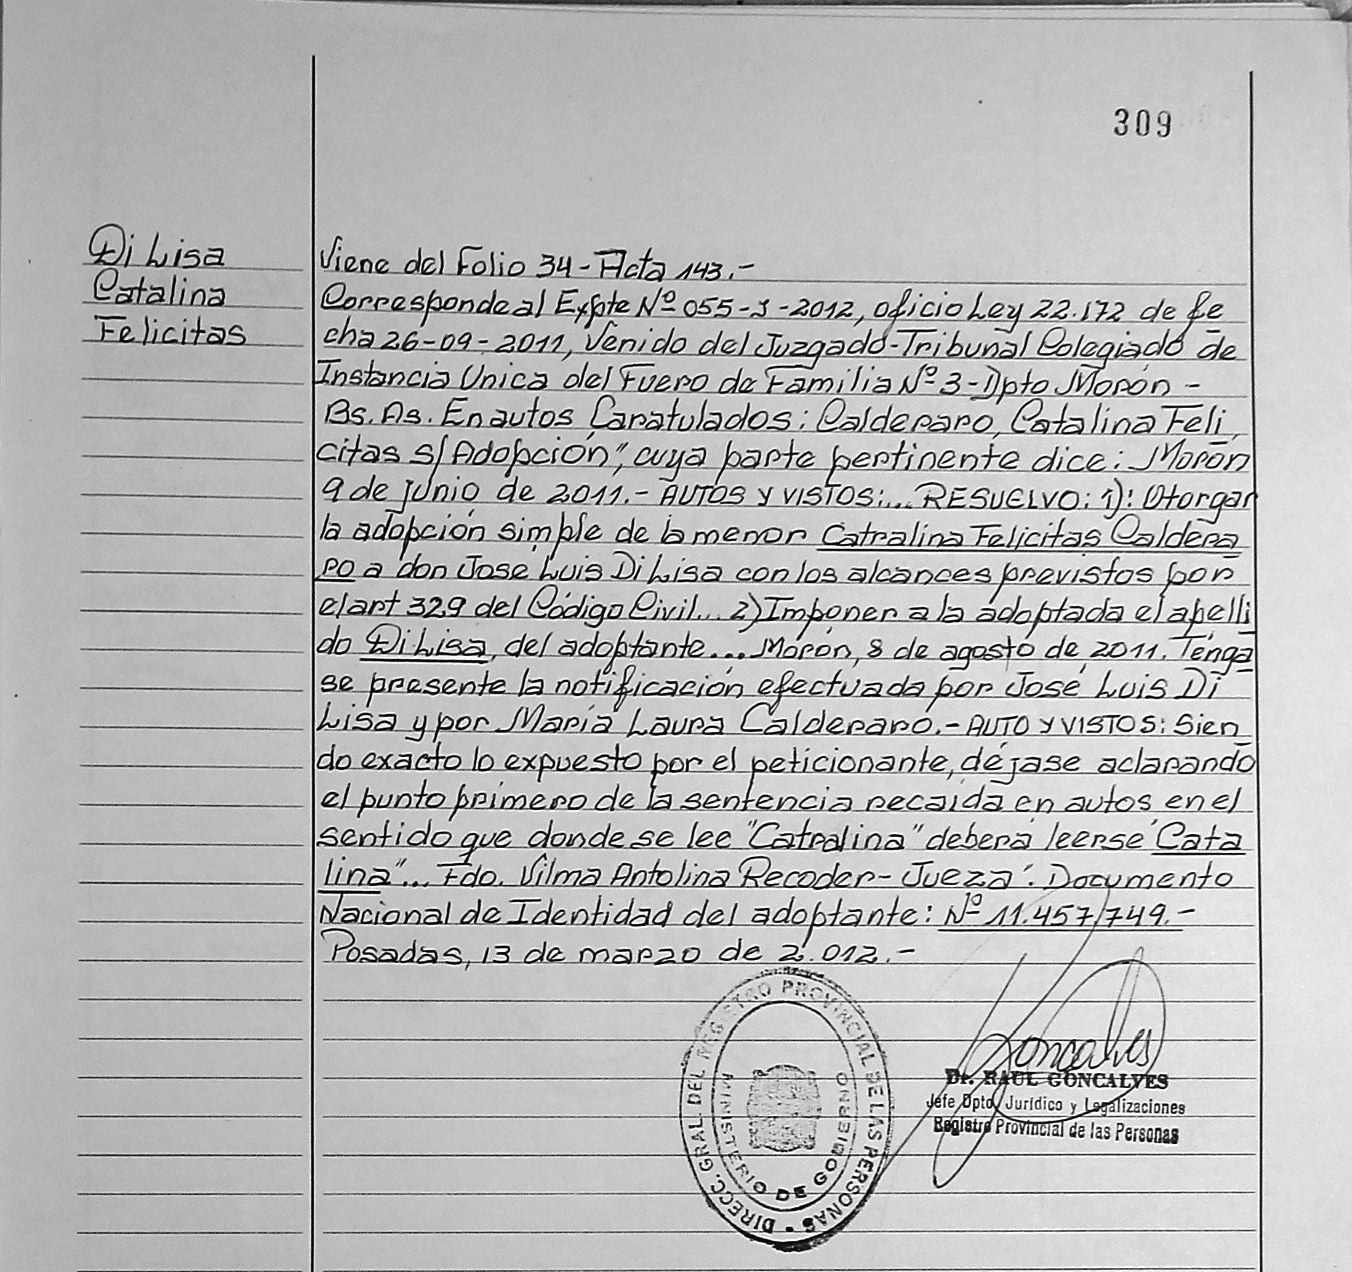 309
Di Lisa
Catalina
Felicitas
Viene del Folio 34 - Acta 143.-
Corresponde al Expte Nº 055-J-2012, oficio Ley 22.172 de fe
cha 26-09-2011, Venido del Juzgado-Tribunal Colegiado de
Instancia Unica del Fuero de Familia Nº 3-Dpto Morón -
Bs. As. En autos Caratulados: Calderaro, Catalina Feli
citas s/Adopción", cuya parte pertinente dice: Morón
9 de junio de 2011.- AUTOS Y VISTOS:... RESUELVO: 1): Otorgar
la adopción simple de la menor Catralina Felicitas Caldera
ro a don Jose Luis Di Lisa con los alcances previstos por
el art 329 del Código Civil... 2) Imponer a la adoptada el apelli
do Di Lisa, del adoptante... Morón, 8 de agosto de 2011. Ténga
se presente la notificación efectuada por José Luis Di
Lisa y por María Laura Calderaro.- AUTO Y VISTOS: Sien
do exacto lo expuesto por el peticionante, déjase aclarando
el punto primero de la sentencia recaída en autos en el
sentido que donde se lee "Catralina" deberá leerse "Cata
lina"... Fdo. Vilma Antolina Recoder- Jueza". Documento
Nacional de Identidad del adoptante: Nº 11.457.749.-
Posadas, 13 de marzo de 2.012.-
DIRECC. GRAL. DEL REGISTRO PROVINCIAL DE LAS PERSONAS -
MINISTERIO DE GOBIERNO
Goncalves
Dr. RAUL GONCALVES
Jefe Dpto. Jurídico y Legalizaciones
Registro Provincial de las Personas